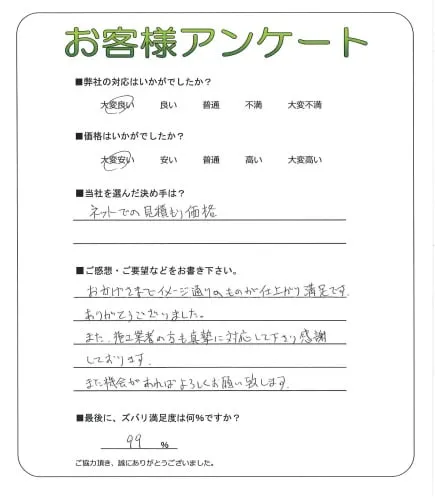 お客様アンケート
■弊社の対応はいかがでしたか？
大変良い 良い 普通 不満 大変不満
■価格はいかがでしたか？
大変安い 安い 普通 高い 大変高い
■当社を選んだ決め手は？
ネットでの見積もり価格
■ご感想・ご要望などをお書き下さい。
おかげさまでイメージ通りのものが仕上がり満足です.
ありがとうございました。
また、施工業者の方も真摯に対応して下さり感謝
しております.
また機会があればよろしくお願い致します.
■最後に、ズバリ満足度は何%ですか？
99 %
ご協力頂き、誠にありがとうございました。